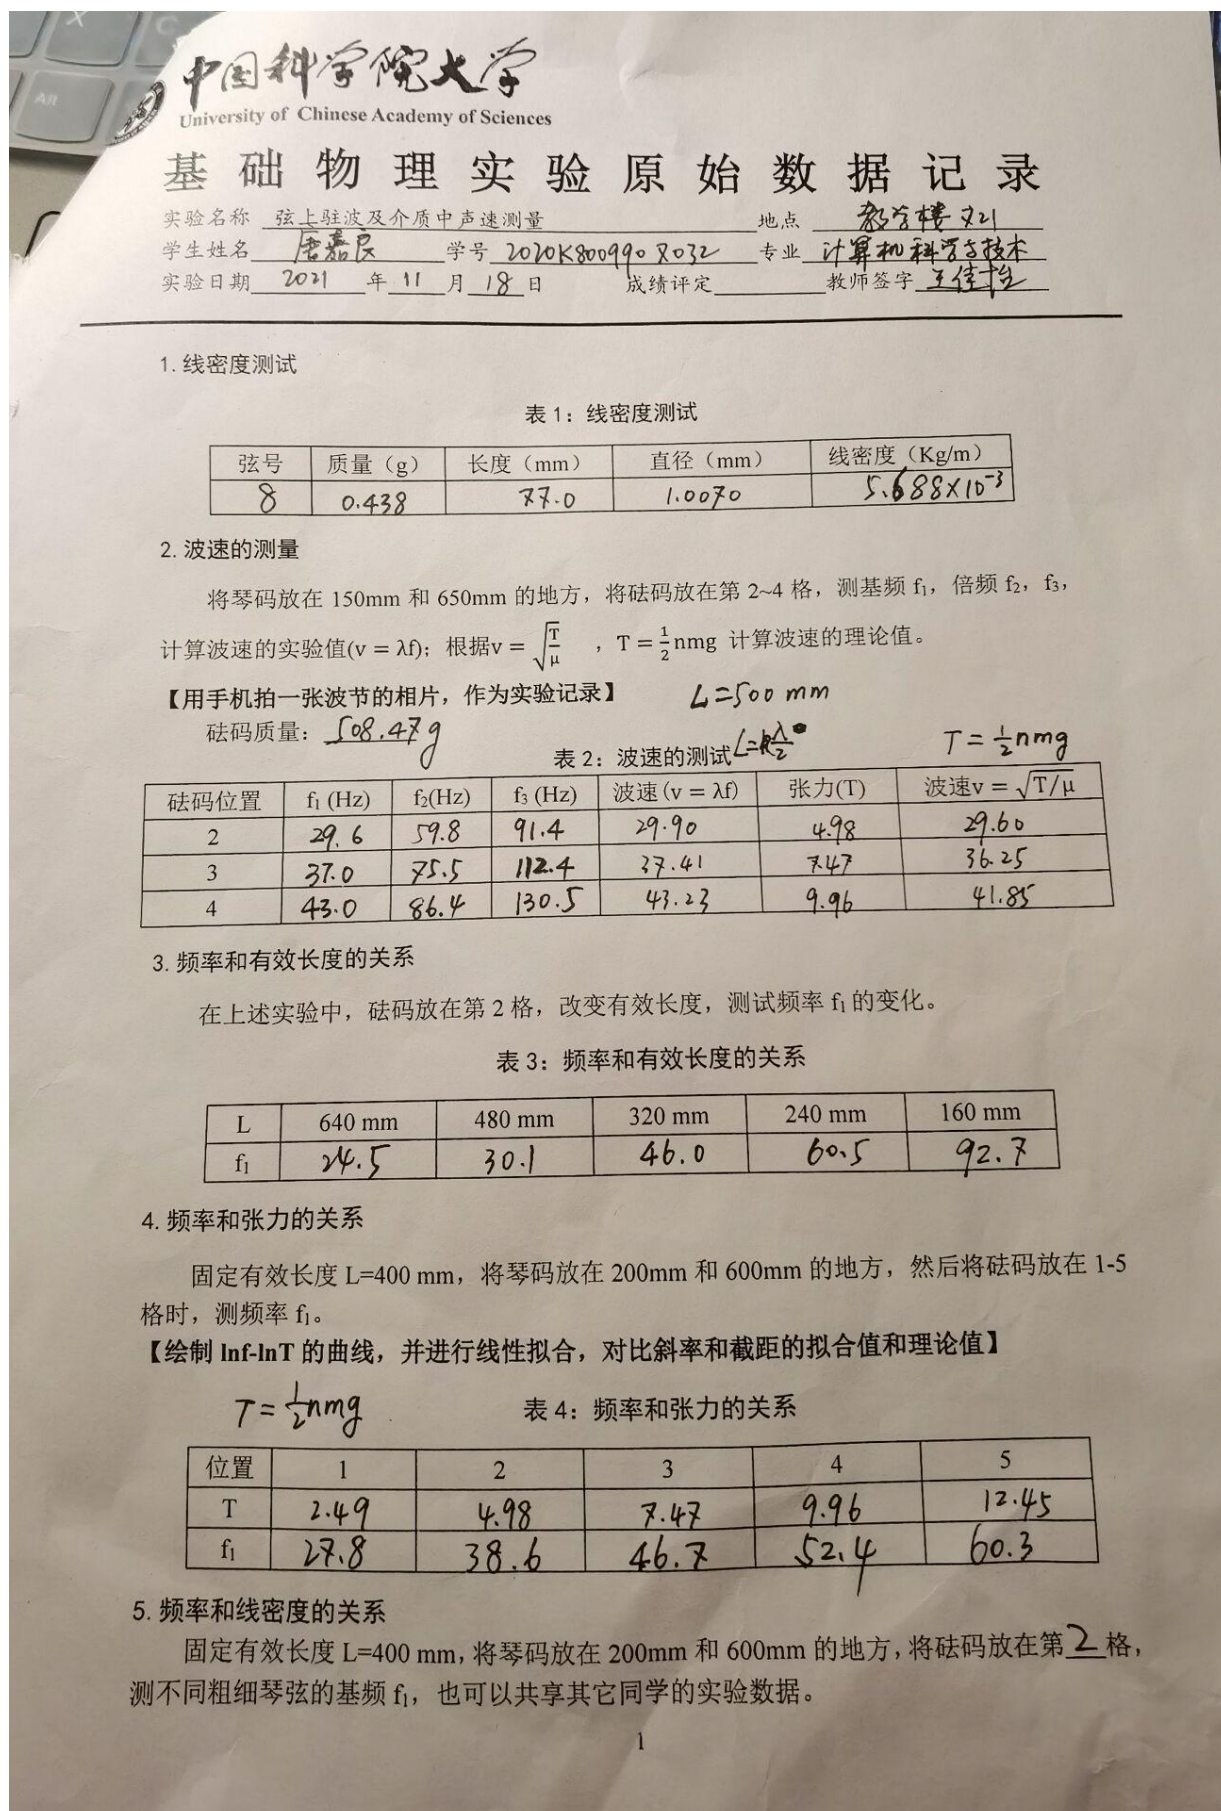 中国科学院大学
University of Chinese Academy of Sciences
基础物理实验原始数据记录
实验名称 弦上驻波及介质中声速测量 地点 教学楼 721
学生姓名 唐嘉良 学号 2020K8009907032 专业 计算机科学与技术
实验日期 2021 年 11 月 18 日 成绩评定 教师签字 王佳怡
1. 线密度测试
表 1：线密度测试
弦号 质量（g） 长度（mm） 直径（mm） 线密度（Kg/m）
8 0.438 77.0 1.0070 5.688×10⁻³
2. 波速的测量
将琴码放在 150mm 和 650mm 的地方，将砝码放在第 2~4 格，测基频 f₁，倍频 f₂，f₃，
计算波速的实验值(v = λf)；根据v = √(T/μ) ，T = ½nmg 计算波速的理论值。
【用手机拍一张波节的相片，作为实验记录】 L=500 mm
砝码质量：508.47g
表 2：波速的测试 L=k λ/2 T=½nmg
砝码位置 f₁ (Hz) f₂(Hz) f₃ (Hz) 波速(v = λf) 张力(T) 波速v = √T/μ
2 29.6 59.8 91.4 29.90 4.98 29.60
3 37.0 75.5 112.4 37.41 7.47 36.25
4 43.0 86.4 130.5 43.23 9.96 41.85
3. 频率和有效长度的关系
在上述实验中，砝码放在第 2 格，改变有效长度，测试频率 f₁ 的变化。
表 3：频率和有效长度的关系
L 640 mm 480 mm 320 mm 240 mm 160 mm
f₁ 24.5 30.1 46.0 60.5 92.7
4. 频率和张力的关系
固定有效长度 L=400 mm，将琴码放在 200mm 和 600mm 的地方，然后将砝码放在 1-5
格时，测频率 f₁。
【绘制 lnf-lnT 的曲线，并进行线性拟合，对比斜率和截距的拟合值和理论值】
T=½nmg 表 4：频率和张力的关系
位置 1 2 3 4 5
T 2.49 4.98 7.47 9.96 12.45
f₁ 27.8 38.6 46.7 52.4 60.3
5. 频率和线密度的关系
固定有效长度 L=400 mm，将琴码放在 200mm 和 600mm 的地方，将砝码放在第 2 格，
测不同粗细琴弦的基频 f₁，也可以共享其它同学的实验数据。
1